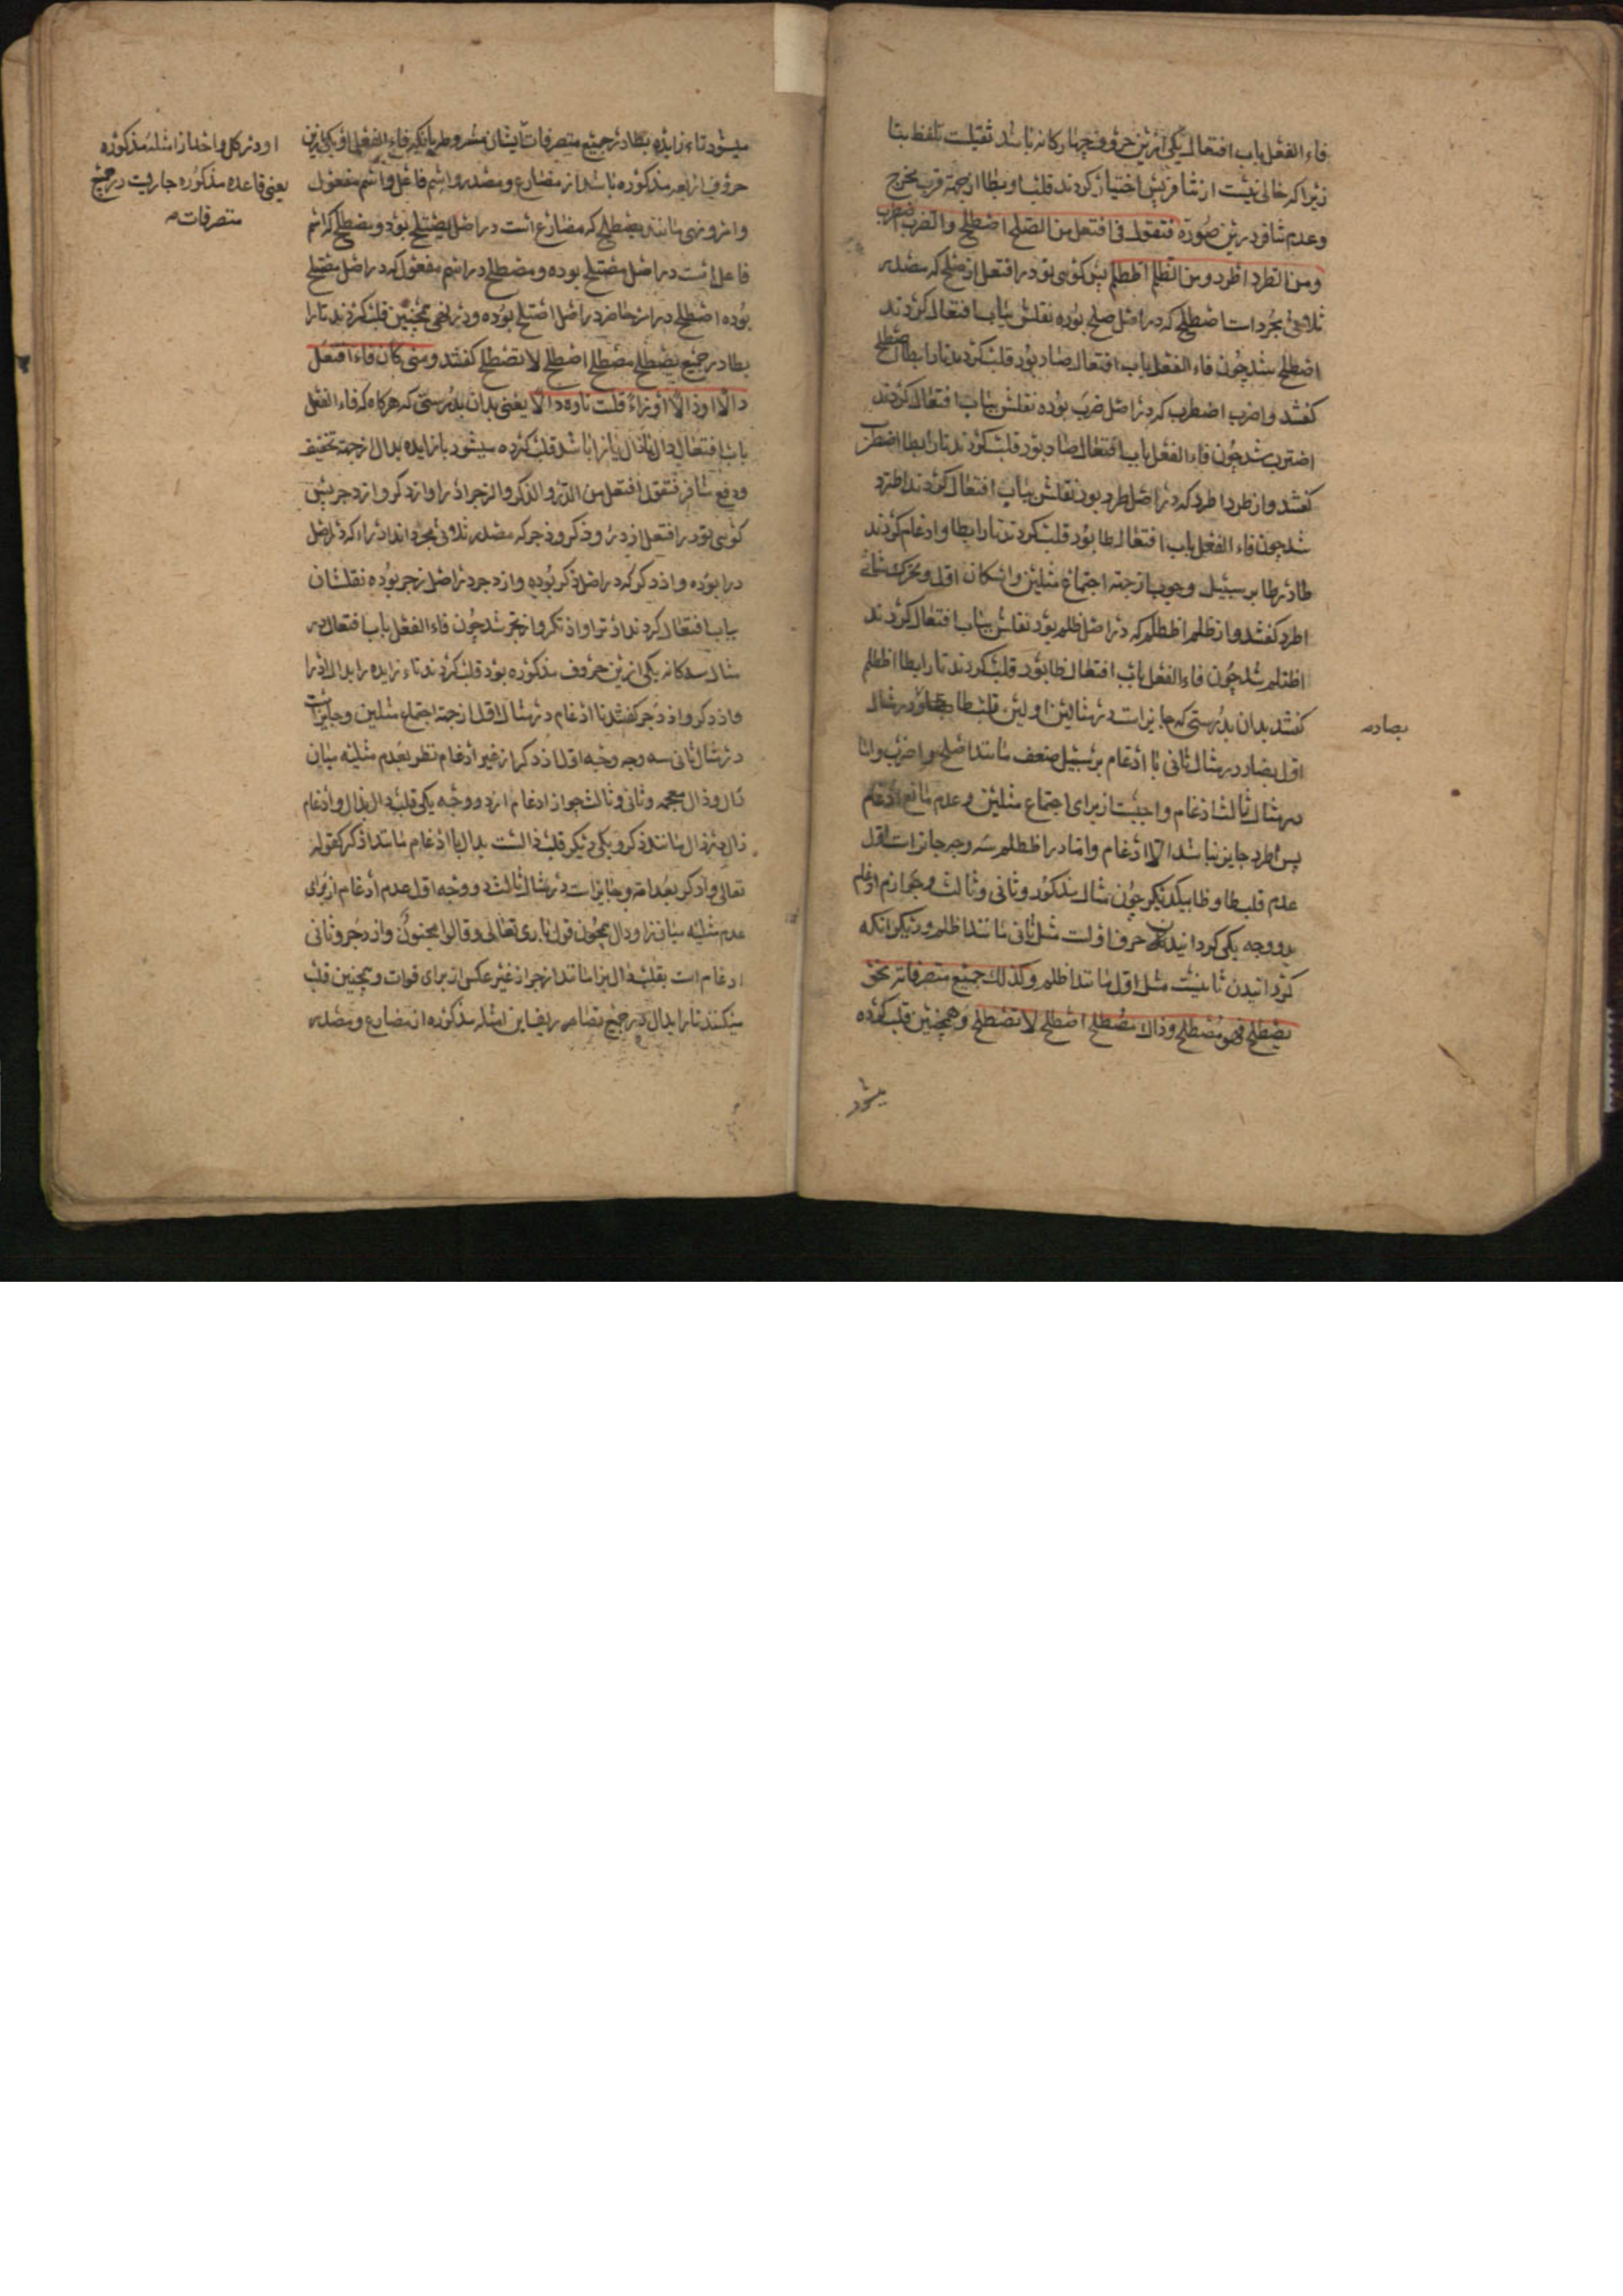 فاء الفعل باب افتعال یکی ازین حروف چهارکانه باشد ثقیلست تلفظ بتا
زیرا که خالی نیست از تنافر پس اختیار کردند قلب تا و بطا از جهة قرب مخرج
وعدم تنافر درین صورة فتقول فی افتعل من الصلح اصطلح والضرب اضطرب
ومن الطرد اطرد ومن الظلم اظطلم پس کوئی تو در افتعل از صلح که مصدر
ثلاثی مجرد است اصطلح که در اصل صلح بوده نقلش بباب افتعال کردند
اصتلح شد چون فاء الفعل باب افتعال صاد بود قلب کردند تا را بطا اصطلح
کفتند و از ضرب اضطرب که در اصل ضرب بوده نقلش بباب افتعال کردند
اضترب شد چون فاء الفعل باب افتعال ضاد بود قلب کردند تا را بطا اضطرب
کفتند و از طرد اطرد که در اصل طرد بود نقلش بباب افتعال کردند اطترد
شد چون فاء الفعل باب افتعال طا بود قلب کردند تا را بطا و ادغام کردند
طا در طا بر سبیل وجوب از جهة اجتماع مثلین و اسکان اول و تحرک ثانی
اطرد کفتند و از ظلم اظطلم که در اصل ظلم بود نقلش بباب افتعال کردند
اظتلم شد چون فاء الفعل باب افتعال ظا بود قلب کردند تا را بطا اظطلم
کفتند بدان بدرستی که جایز است در مثالین اولین قلب طا بصاد در مثال
بصاد
اول بضاد در مثال ثانی با ادغام بر سبیل ضعف مانند اصلح و اضرب و اما
در مثال ثالث ادغام واجبست از برای اجتماع مثلین و عدم مانع ادغام
پس اطرد جایز نباشد الا ادغام و اما در اظطلم سه وجه جایز است اول
عدم قلب طا و ظا بیکدیکر چون مثال مذکور و ثانی و ثالث وجه ادغام
بدو وجه یکی کردانیدن حرف اولست مثل ثانی مانند اطلم و دیکر آنکه
کردانیدن ثانیست مثل اول مانند اظلم وکذلک جمیع متصرفاته نحو
یصطلح فهو مصطلح وذاک مصطلح اصطلح لا تصطلح و همچنین قلب کرده
میشود
میشود تاء زایده بطا در جمیع متصرفات ایشان مشروط بآنکه فاء الفعل او یکی ازین
حروف اربعه مذکوره باشد از مضارع و مصدر و اسم فاعل و اسم مفعول
و امر و نهی مانند یصطلح که مضارع است در اصل یصتلح بود و مصطلح که اسم
فاعل است در اصل مصتلح بوده و مصطلح در اسم مفعول که در اصل مصتلح
بوده اصطلح در امر حاضر در اصل اصتلح بوده و در نهی همچنین قلب کردند تا را
بطا در جمیع یصطلح مصطلح اصطلح لا تصطلح کفتند ومتی کان فاء افتعل
دالا او ذالا او زاء قلبت تاوه دالا یعنی بدان بدرستی که هرکاه که فاء الفعل
باب افتعال دال یا ذال یا زا باشد قلب کرده میشود تا زایده بدال از جهة تخفیف
و دفع تنافر فتقول افتعل من الدرء والذکر والزجر ادراء و اذدکر و ازدجر پس
کوئی تو در افتعل از درء و ذکر و زجر که مصدر ثلاثی مجرد اند ادراء که در اصل
درا بوده و اذدکر که در اصل ذکر بوده و ازدجر در اصل زجر بوده نقلشان
بباب افتعال کردند ادترا و اذتکر و ازتجر شد چون فاء الفعل باب افتعال در
مثال سه کانه یکی ازین حروف مذکوره بود قلب کردند تاء زایده را بدال ادرا
و اذدکر و ازدجر کفتند با ادغام در مثال اول از جهة اجتماع مثلین و جایز است
در مثال ثانی سه وجه وجه اول اذدکر از غیر ادغام نظر بعدم مثلیه میان
دال و ذال معجمه و ثانی و ثالث جواز ادغام از دو وجه یکی قلب دال بذال و ادغام
ذال در ذال مانند اذکر و یکی دیکر قلب ذالست بدال با ادغام مانند ادکر کقوله
تعالی وادکر بعد امة و جایز است در مثال ثالث دو وجه اول عدم ادغام از برای
عدم مثلیه میان زا و دال همچون قول باری تعالی وقالوا مجنون وازدجر و ثانی
ادغام است بقلب دال بزا مانند ازجر از غیر عکس از برای فوات و همچنین قلب
میکنند تا را بدال در جمیع تصاریف این امثله مذکوره از مضارع و مصدر
او در کل واحد از امثله مذکوره
یعنی قاعده مذکوره جاریست در جمیع
متصرفات